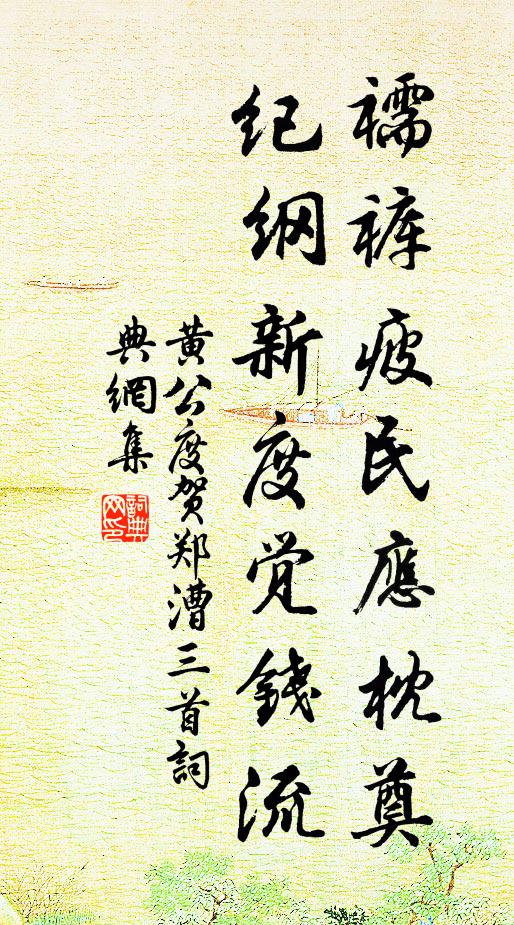 襦裤疲民應枕奠
纪纲新度觉錢流
黄公度贺郑漕三首詞
典網集
詞典
网印